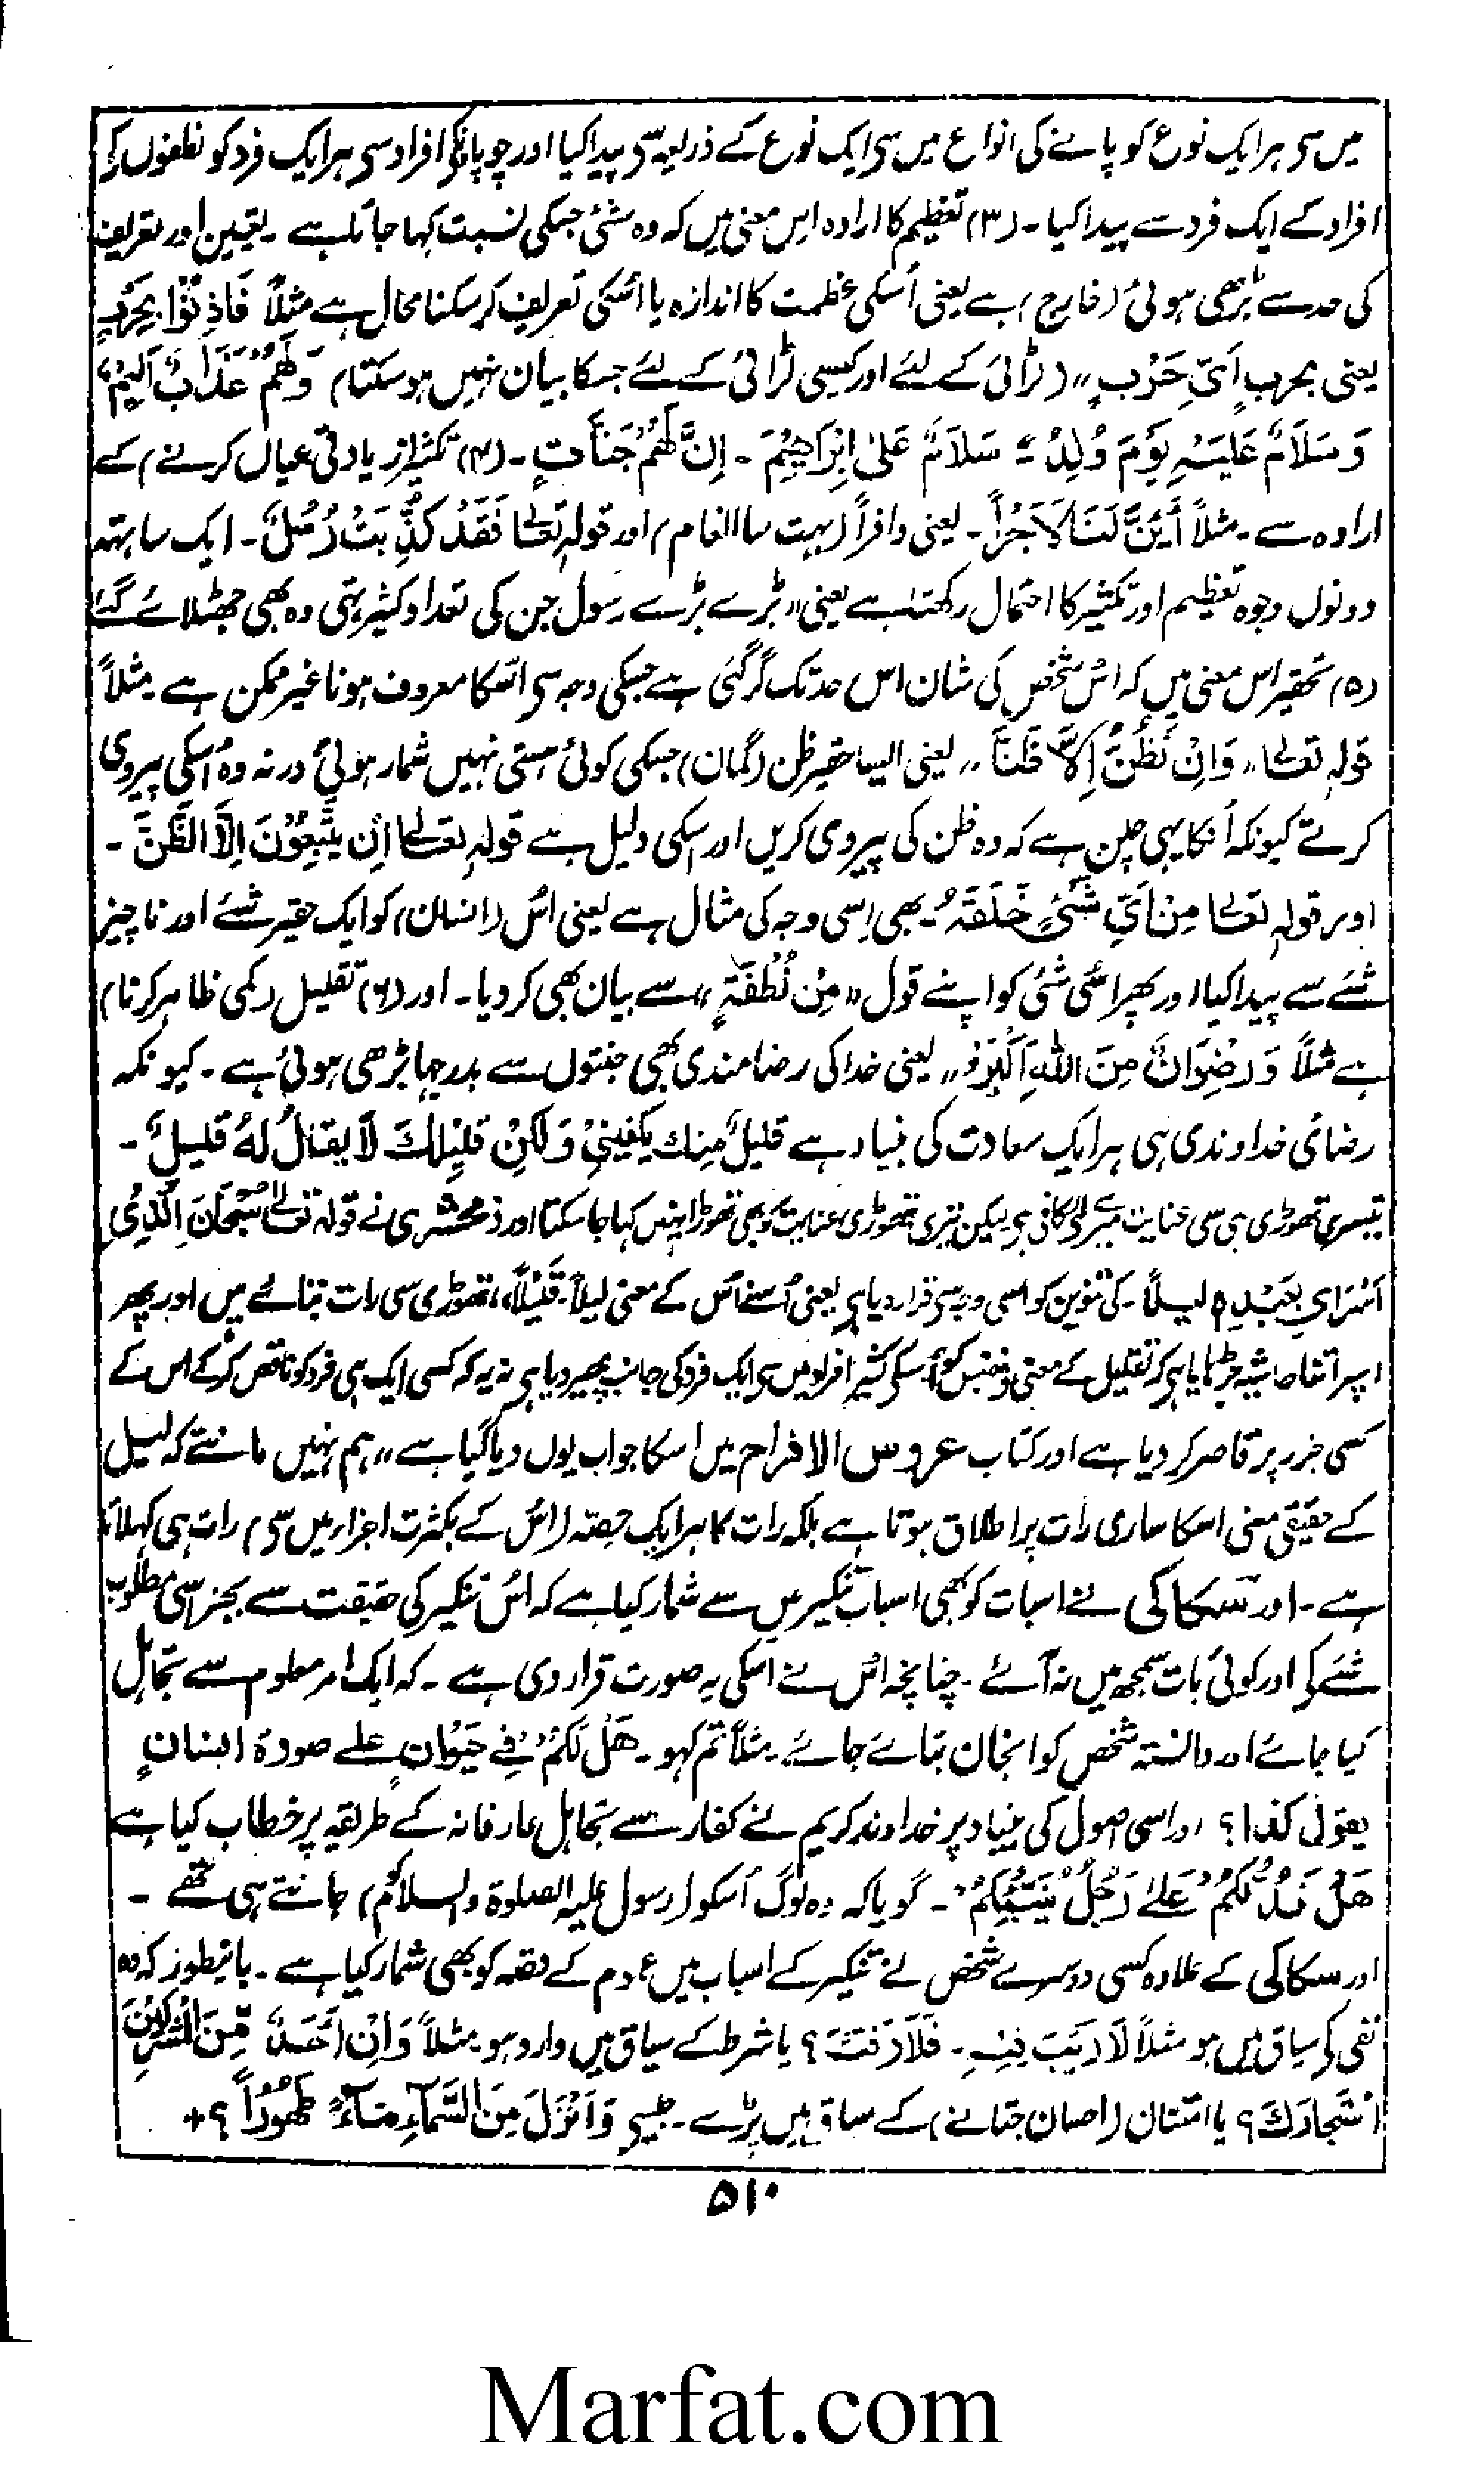 میں سی ہر ایک نوع کو پانے کی انواع میں سی ایک نوع کے ذریعہ سی پیدا کیا اور چوپایونکی افراد سی ہر ایک فرد کو نطفوں کی
افراد کے ایک فرد سے پیدا کیا ۔ (۳) تعظیم کا ارادہ اس معنی میں کہ وہ شئی جسکی نسبت کہا جاتا ہے ۔ یقین اور تعریف
کی حد سے بڑھی ہوئی (خارج) ہے یعنی اُسکی عظمت کا اندازہ یا اُسکی تعریف کر سکنا محال ہے مثلاً فَاذِنُوْا بِحَرْبٍ
یعنی بحربٍ اَیِّ حَرْبٍ ،، (لڑائی کے لئے اور کیسی لڑائی کے لئے جسکا بیان نہیں ہو سکتا) وَلَهُمْ عَذَابٌ اَلِیْمٌ
وَسَلَامٌ عَلَیْہِ یَوْمَ وُلِدَ ؎ سَلَامٌ عَلیٰ اِبْرَاهِیْمَ ۔ اِنَّ لَهُمْ جَنَّاتٍ ۔ (۴) تکثیر (زیادتی عیاں کرنے) کے
ارادہ سے ۔ مثلاً أَئِنَّ لَنَا لَاَجْرًا ۔ یعنی وافراً (بہت سا انعام) اور قولہ تعالٰے فَقَدْ كُذِّبَتْ رُسُلٌ ۔ ایک ساتھہ
دونوں وجوہ تعظیم اور تکثیر کا احتمال رکھتا ہے یعنی ،، بڑے بڑے رسول جن کی تعداد کثیر تھی وہ بھی جھٹلائے گئے
(۵) تحقیر اس معنی میں کہ اُس شخص کی شان اس حد تک گر گئی ہے جسکی وجہ سی اُسکا معروف ہونا غیر ممکن ہے ۔ مثلاً
قولہ تعالٰے ،، وَاِنْ نَظُنُّ اِلَّا ظَنًّا ،، یعنی ایسا حقیر ظن (گمان) جسکی کوئی ہستی نہیں شمار ہوئی ورنہ وہ اُسکی پیروی
کرتے کیونکہ اُنکا یہی چلن ہے کہ وہ ظن کی پیروی کریں اور اسکی دلیل ہے قولہ تعالٰے اِن یَتَّبِعُوْنَ اِلَّا الظَّنَّ ۔
اور قولہ تعالٰے مِنْ اَیِّ شَیْءٍ خَلَقَہٗ ۔ بھی اسی وجہ کی مثال ہے یعنی اُس (انسان) کو ایک حقیر شئے اور ناچیز
شئے سے پیدا کیا اور پھر اُسی شئی کو اپنے قول ،، مِنْ نُطْفَۃٍ ،، سے بیان بھی کر دیا ۔ اور (۶) تقلیل (کمی ظاہر کرنا)
ہے مثلاً وَرِضْوَانٌ مِنَ اللّٰہِ اَکْبَرُ ،، یعنی خدا کی رضامندی بھی جنتوں سے بدرجہا بڑھی ہوئی ہے ۔ کیونکہ
رضائی خداوندی ہی ہر ایک سعادت کی بنیاد ہے قلیلٌ منِك یکفینیْ وَلکِنْ قلیلك لَا یقالُ لهُ قلیلٌ ۔
تیسری تھوڑی ہی سی عنایت میرے لئے کافی ہی لیکن تیری تھوڑی عنایت کو بھی تھوڑا نہیں کہا جا سکتا اور زمخشری نے قولہ تعالٰے سُبْحَانَ الَّذِیْ
اَسْرَایٰ بِعَبْدِہٖ لیلاً ۔ کی تنوین کو اسی وجہ سی قرار دیا ہی یعنی اُسنے اُس کے معنی لیلاً قَلِیْلاً ،، تھوڑی سی رات بتائے ہیں اور پھر
اسپر اتنا حاشیہ چڑھایا ہی کہ تقلیل کے معنی تو جنس کو اُسکی کثیر افراد میں سی ایک فرد کی جانب پھیر دینا ہی نہ یہ کہ کسی ایک ہی فرد کو ناقص کر کے اس کے
کسی جزر پر قاصر کر دیا ہے اور کتاب عروس الافراح میں اسکا جواب یوں دیا گیا ہے ،، ہم نہیں مانتے کہ لیل
کے حقیقی معنی اسکا ساری رات پر اطلاق ہوتا ہے بلکہ رات کا ہر ایک حصہ (اُس کے بکثرت اجزار میں سی) رات ہی کہلاتا
ہے ۔ اور سکاکی نے اسبات کو بھی اسباب تنکیر میں سے شمار کیا ہے کہ اُس تنکیر کی حقیقت سے بجز اسی مطلوب
شئے کے اور کوئی بات سمجھ میں نہ آئے ۔ چنانچہ اُس نے اسکی یہ صورت قرار دی ہے ۔ کہ ایک امر معلوم سے تجاہل
کیا جائے اور دانستہ شخص کو انجان بتائے جائے ۔ مثلاً تم کہو ۔ هَلْ لَکُمْ فِے حَیْوانٍ علے صورۃ انسانٍ
یقول کذا ؟ اور اسی اصول کی بنیاد پر خداوند کریم نے کفار سے تجاہل عارفانہ کے طریقہ پر خطاب کیا ہے
هَلْ نَدُلُّکُمْ عَلےٰ رَجُلٍ یُنَبِّئُکُمْ ۔ گویا کہ وہ لوگ اُسکو (رسول علیہ الصلوۃ والسلام کو) جانتے ہی تھے ۔
اور سکاکی کے علاوہ کسی دوسرے شخص نے تنکیر کے اسباب میں عموم کے قصد کو بھی شمار کیا ہے ۔ باینطور کہ وہ
نفی کی سیاق میں ہو مثلاً لَا رَیْبَ فِیْهِ ۔ فَلَا رَفَثَ ؟ یا شرط کے سیاق میں وارد ہو ۔ مثلاً وَاِنْ اَحَدٌ مِّنَ الْمُشْرِکِیْنَ
اسْتَجَارَكَ ؟ یا امتنان (احسان جتانے) کے ساق میں پڑے ۔ جیسی وَاَنْزَلَ مِنَ السَّمَآءِ مَآءً طَهُوْرًا ؟ +
۵۱۰
Marfat.com